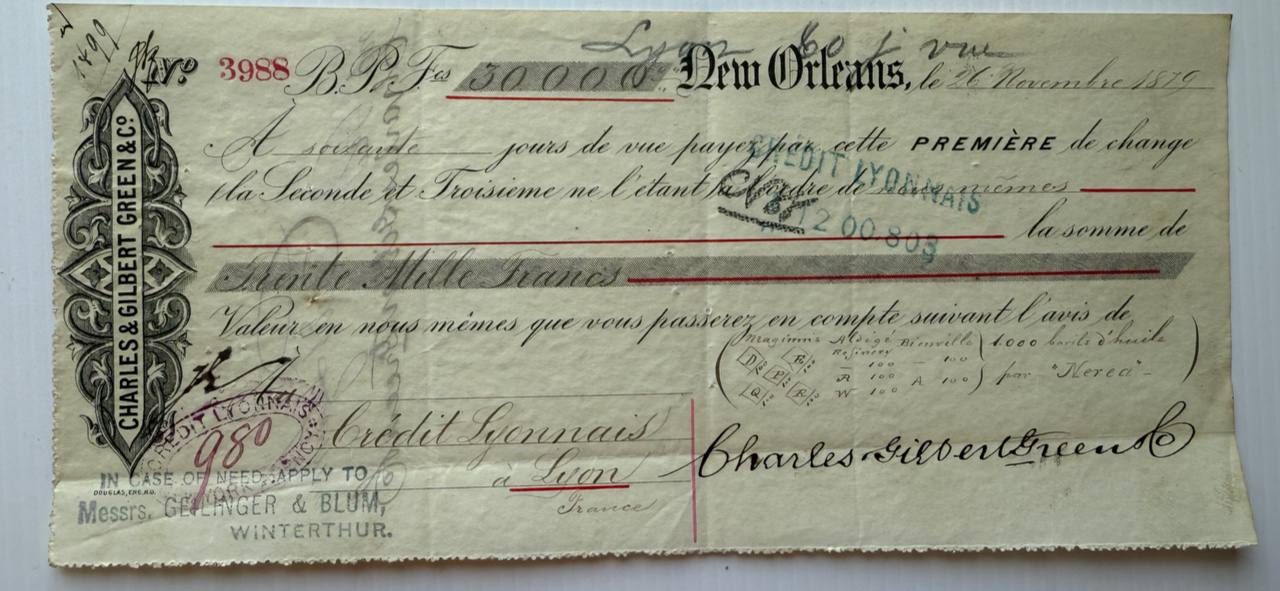 1499
No 3988 B.P. Fcs 30.000 New Orleans, le 26 Novembre 1879
Lyon 60 j vue
À soixante jours de vue payez par cette PREMIÈRE de change
(la Seconde et Troisieme ne l'étant) à l'ordre de nous mêmes
CRÉDIT LYONNAIS
No 1200.803
la somme de
Trente Mille Francs
Valeur en nous mêmes que vous passerez en compte suivant l'avis de
Aldigé Bienville 1000 barils d'huile
Refinery 100 100
D E
P A 100 A 100 par "Nerea"
Q R W 100
CHARLES & GILBERT GREEN & Co.
CREDIT LYONNAIS
980
Crédit Lyonnais
à Lyon
France
Charles & Gilbert Green & Co
IN CASE OF NEED APPLY TO
DOUGLAS, ENG. N.O.
Messrs. GEILINGER & BLUM,
WINTERTHUR.